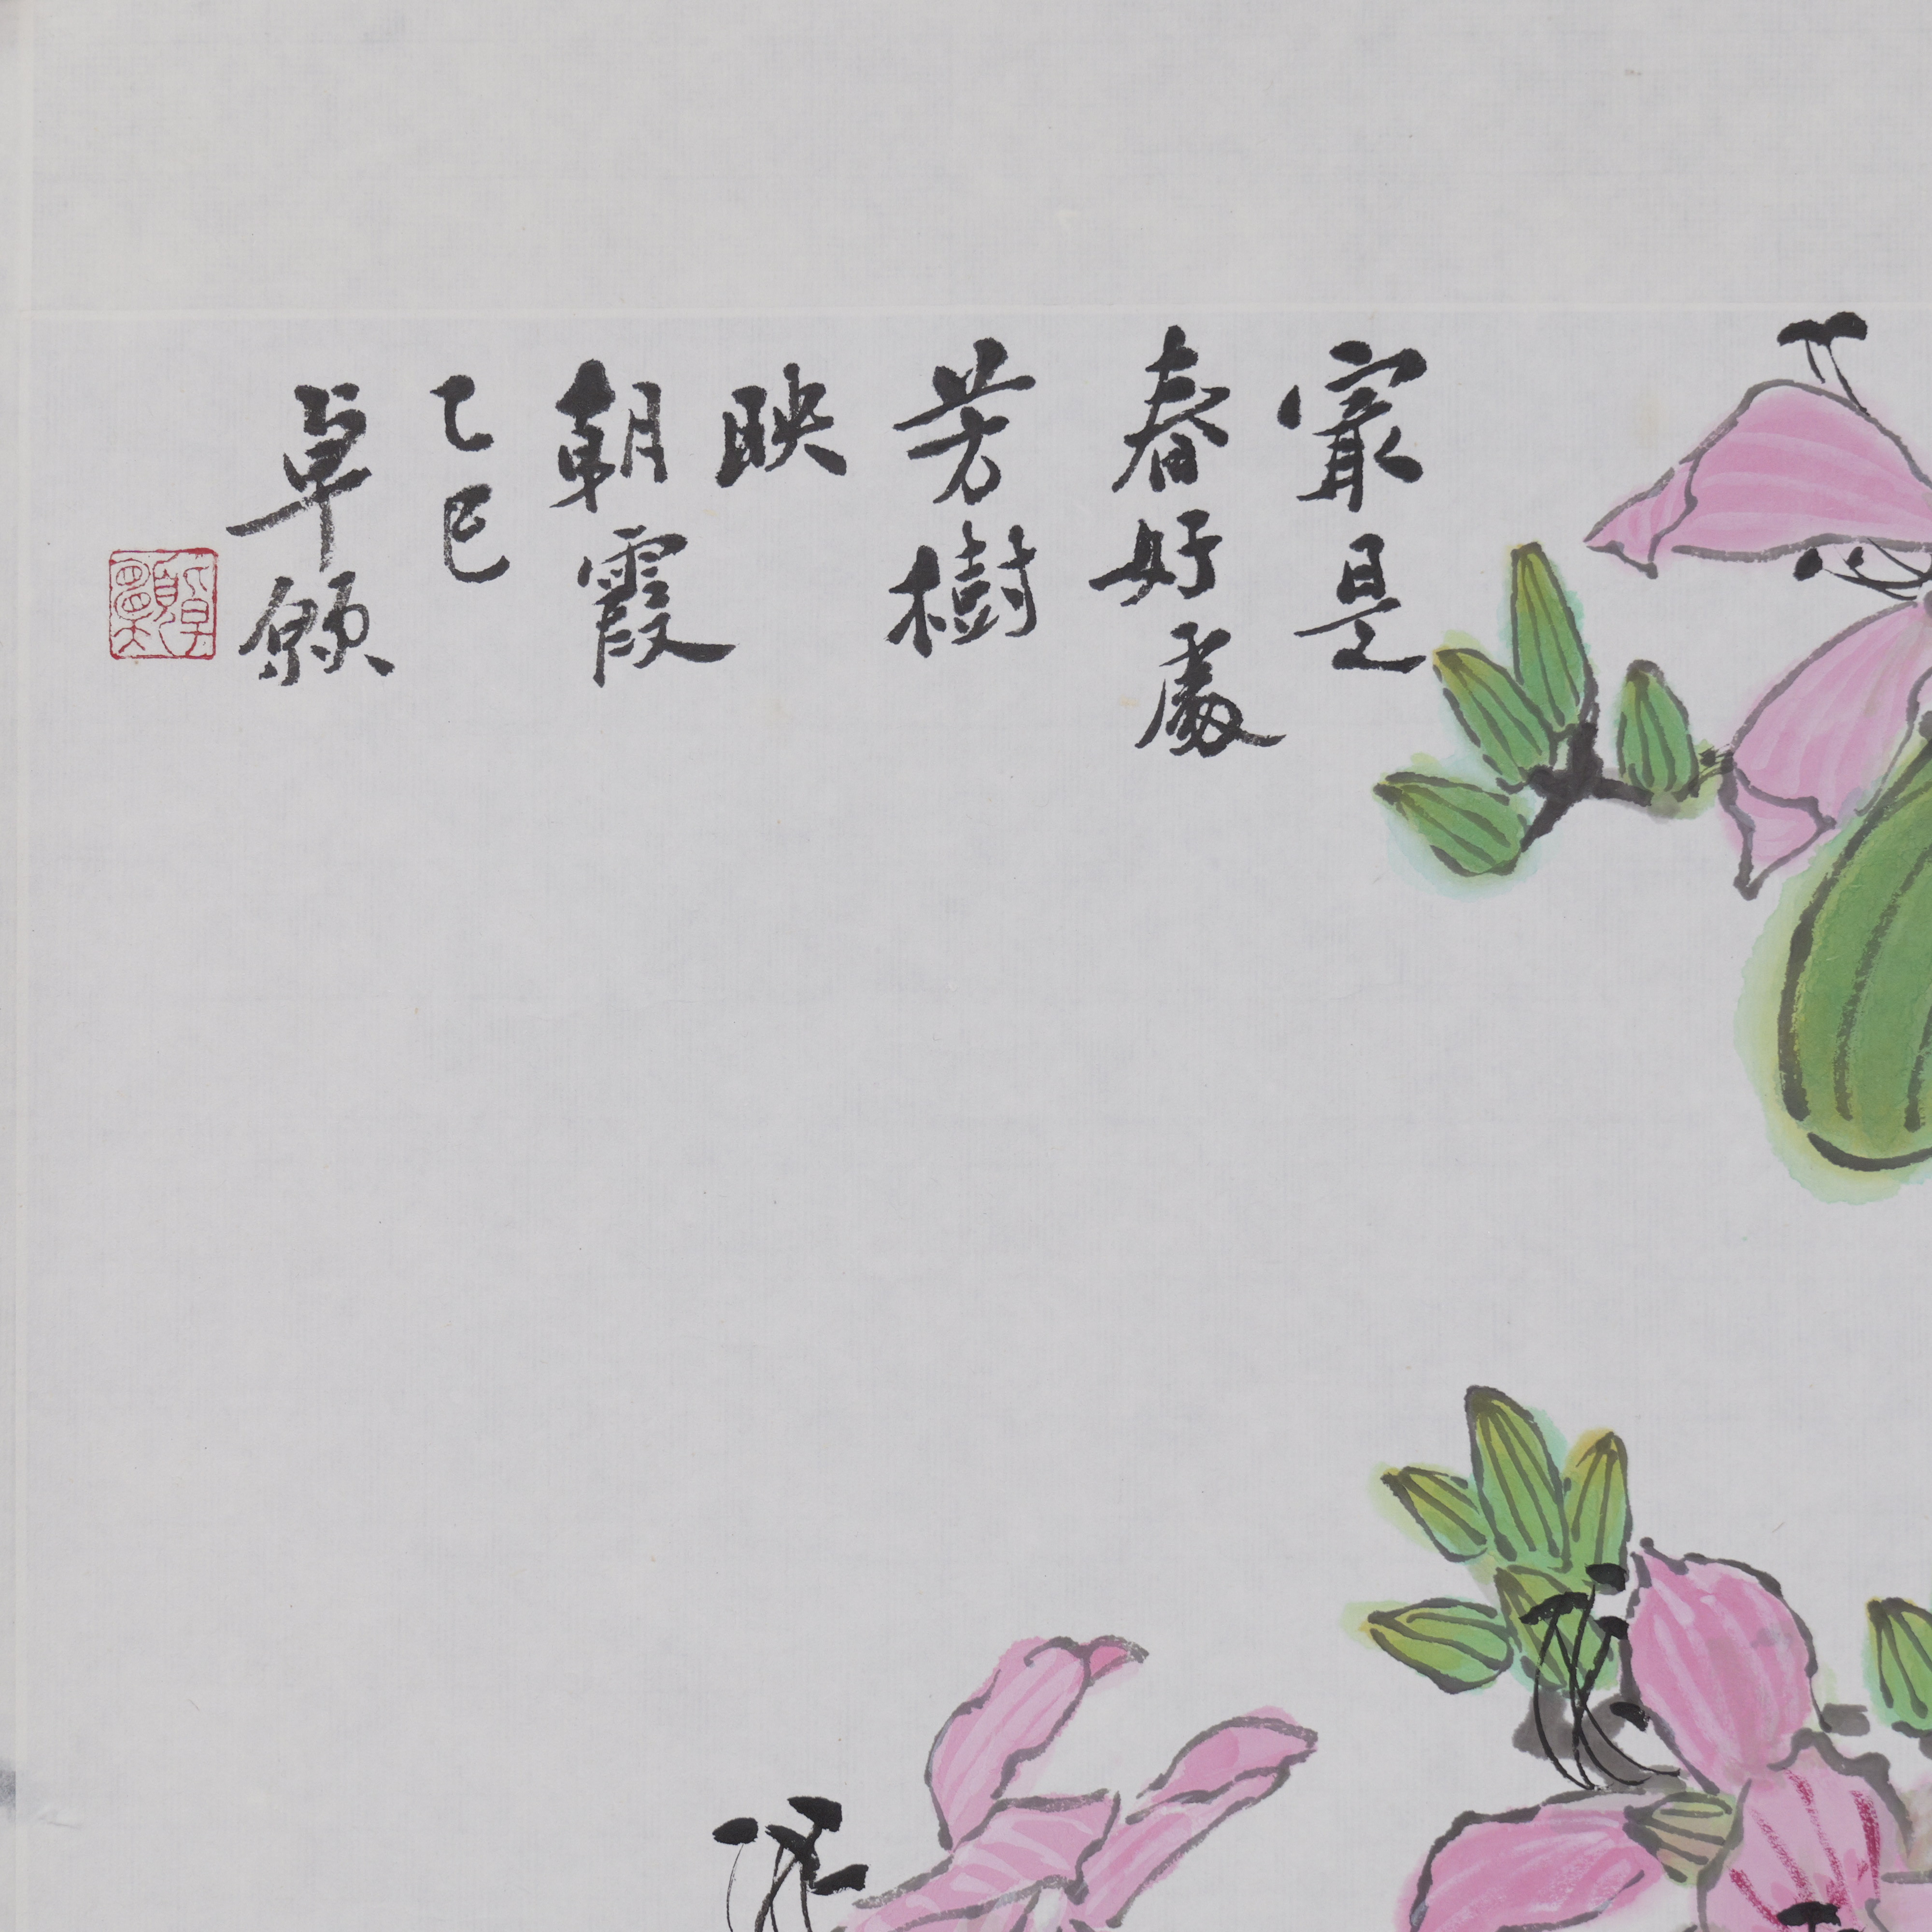 寂是
春好處
芳樹
映
朝霞
乙巳
卓顥